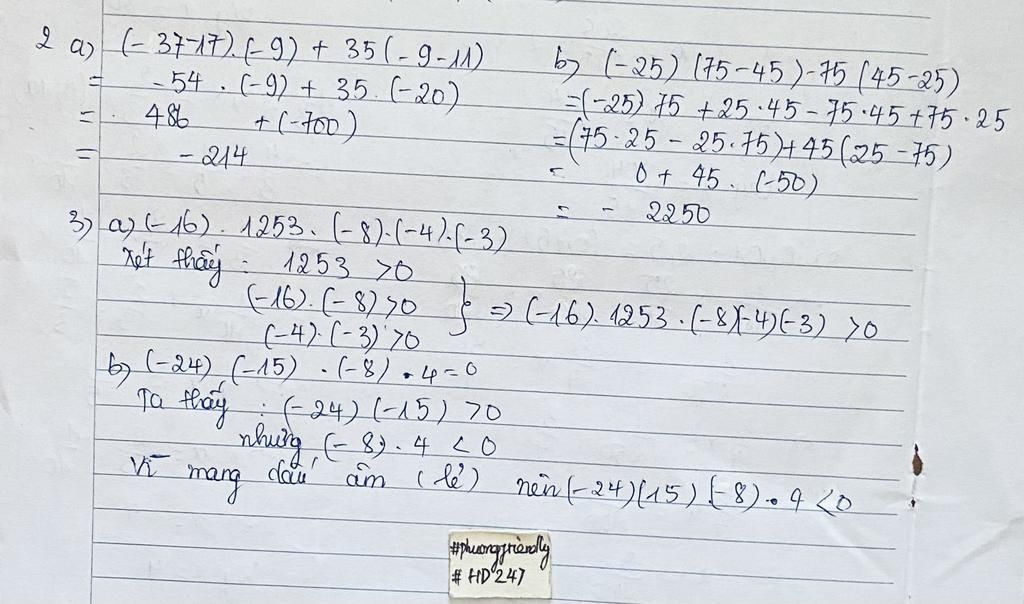 2 a) (-37-17).(-9) + 35(-9-11)
= -54 . (-9) + 35. (-20)
= . 486 + (-700)
= - 214
b) (-25) (75-45) - 75 (45-25)
= (-25) 75 + 25.45 - 75.45 + 75.25
= (75.25 - 25.75) + 45(25-75)
= 0 + 45. (-50)
= - 2250
3) a) (-16) . 1253. (-8).(-4).(-3)
Xét thấy : 1253 >0
(-16). (-8) >0
(-4). (-3) >0
} => (-16). 1253 . (-8)(-4)(-3) >0
b) (-24) (-15) . (-8) . 4 = 0
Ta thấy : (-24) (-15) >0
nhưng (-8) . 4 < 0
Vì mang dấu âm (lẻ) nên (-24)(15) (-8) . 4 <0
#phuongfriendly
# HD247